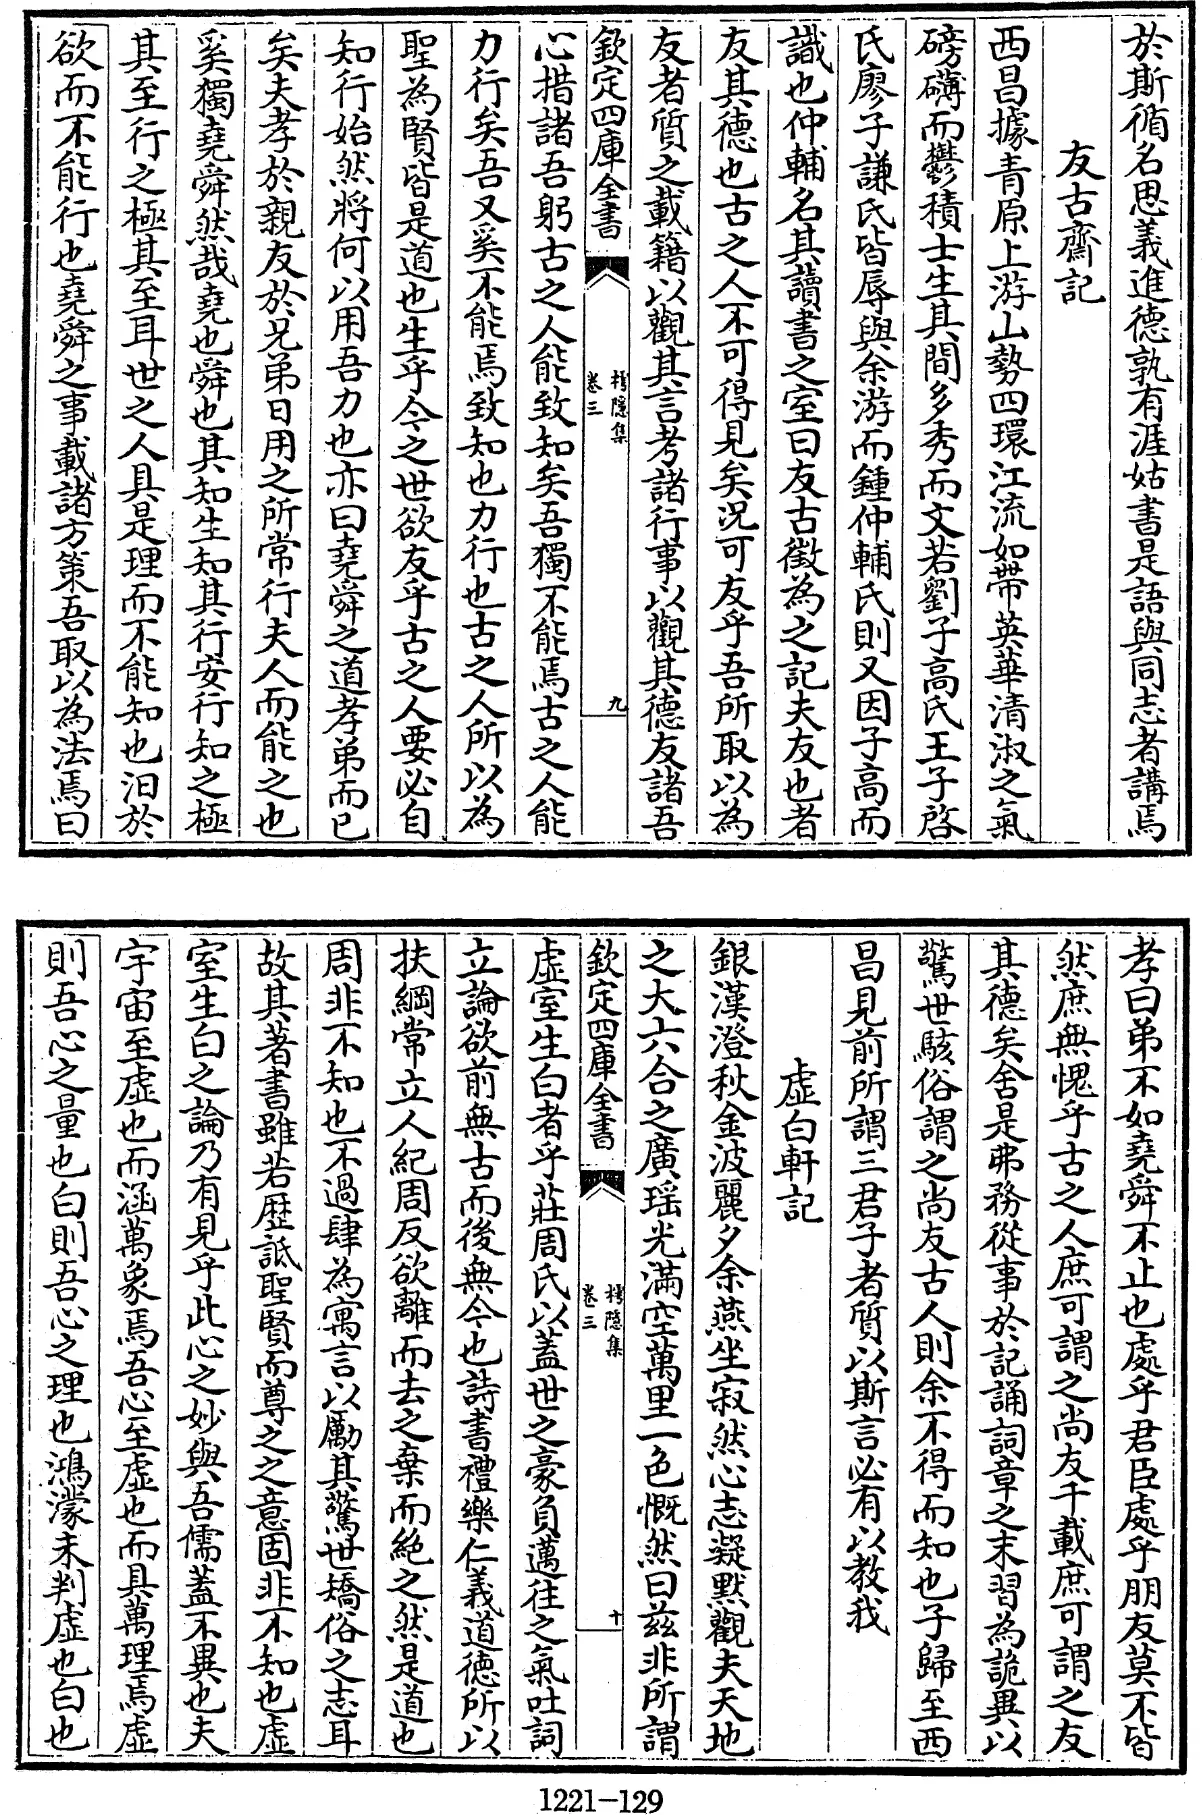 於斯循名思義進德孰有涯姑書是語與同志者講焉
友古齋記
西昌據青原上游山勢四環江流如帶英華清淑之氣
磅礴而鬱積士生其間多秀而文若劉子高氏王子啓
氏廖子謙氏皆辱與余游而鍾仲輔氏則又因子高而
識也仲輔名其讀書之室曰友古徵為之記夫友也者
友其德也古之人不可得見矣況可友乎吾所取以為
友者質之載籍以觀其言考諸行事以觀其德友諸吾
欽定四庫全書
樗隱集
卷三
九
心措諸吾躬古之人能致知矣吾獨不能焉古之人能
力行矣吾又奚不能焉致知也力行也古之人所以為
聖為賢皆是道也生乎今之世欲友乎古之人要必自
知行始然將何以用吾力也亦曰堯舜之道孝弟而已
矣夫孝於親友於兄弟日用之所常行夫人而能之也
奚獨堯舜然哉堯也舜也其知生知其行安行知之極
其至行之極其至耳世之人具是理而不能知也汩於
欲而不能行也堯舜之事載諸方策吾取以為法焉曰
孝曰弟不如堯舜不止也處乎君臣處乎朋友莫不皆
然庶無愧乎古之人庶可謂之尚友千載庶可謂之友
其德矣舍是弗務從事於記誦詞章之末習為詭異以
驚世駭俗謂之尚友古人則余不得而知也子歸至西
昌見前所謂三君子者質以斯言必有以教我
虛白軒記
銀漢澄秋金波麗夕余燕坐寂然心志凝默觀夫天地
之大六合之廣瑤光滿空萬里一色慨然曰茲非所謂
欽定四庫全書
樗隱集
卷三
十
虛室生白者乎莊周氏以蓋世之豪負邁往之氣吐詞
立論欲前無古而後無今也詩書禮樂仁義道德所以
扶綱常立人紀周反欲離而去之棄而絶之然是道也
周非不知也不過肆為寓言以勵其驚世矯俗之志耳
故其著書雖若歷詆聖賢而尊之之意固非不知也虛
室生白之論乃有見乎此心之妙與吾儒蓋不異也夫
宇宙至虛也而涵萬象焉吾心至虛也而具萬理焉虛
則吾心之量也白則吾心之理也鴻濛未判虛也白也
1221-129